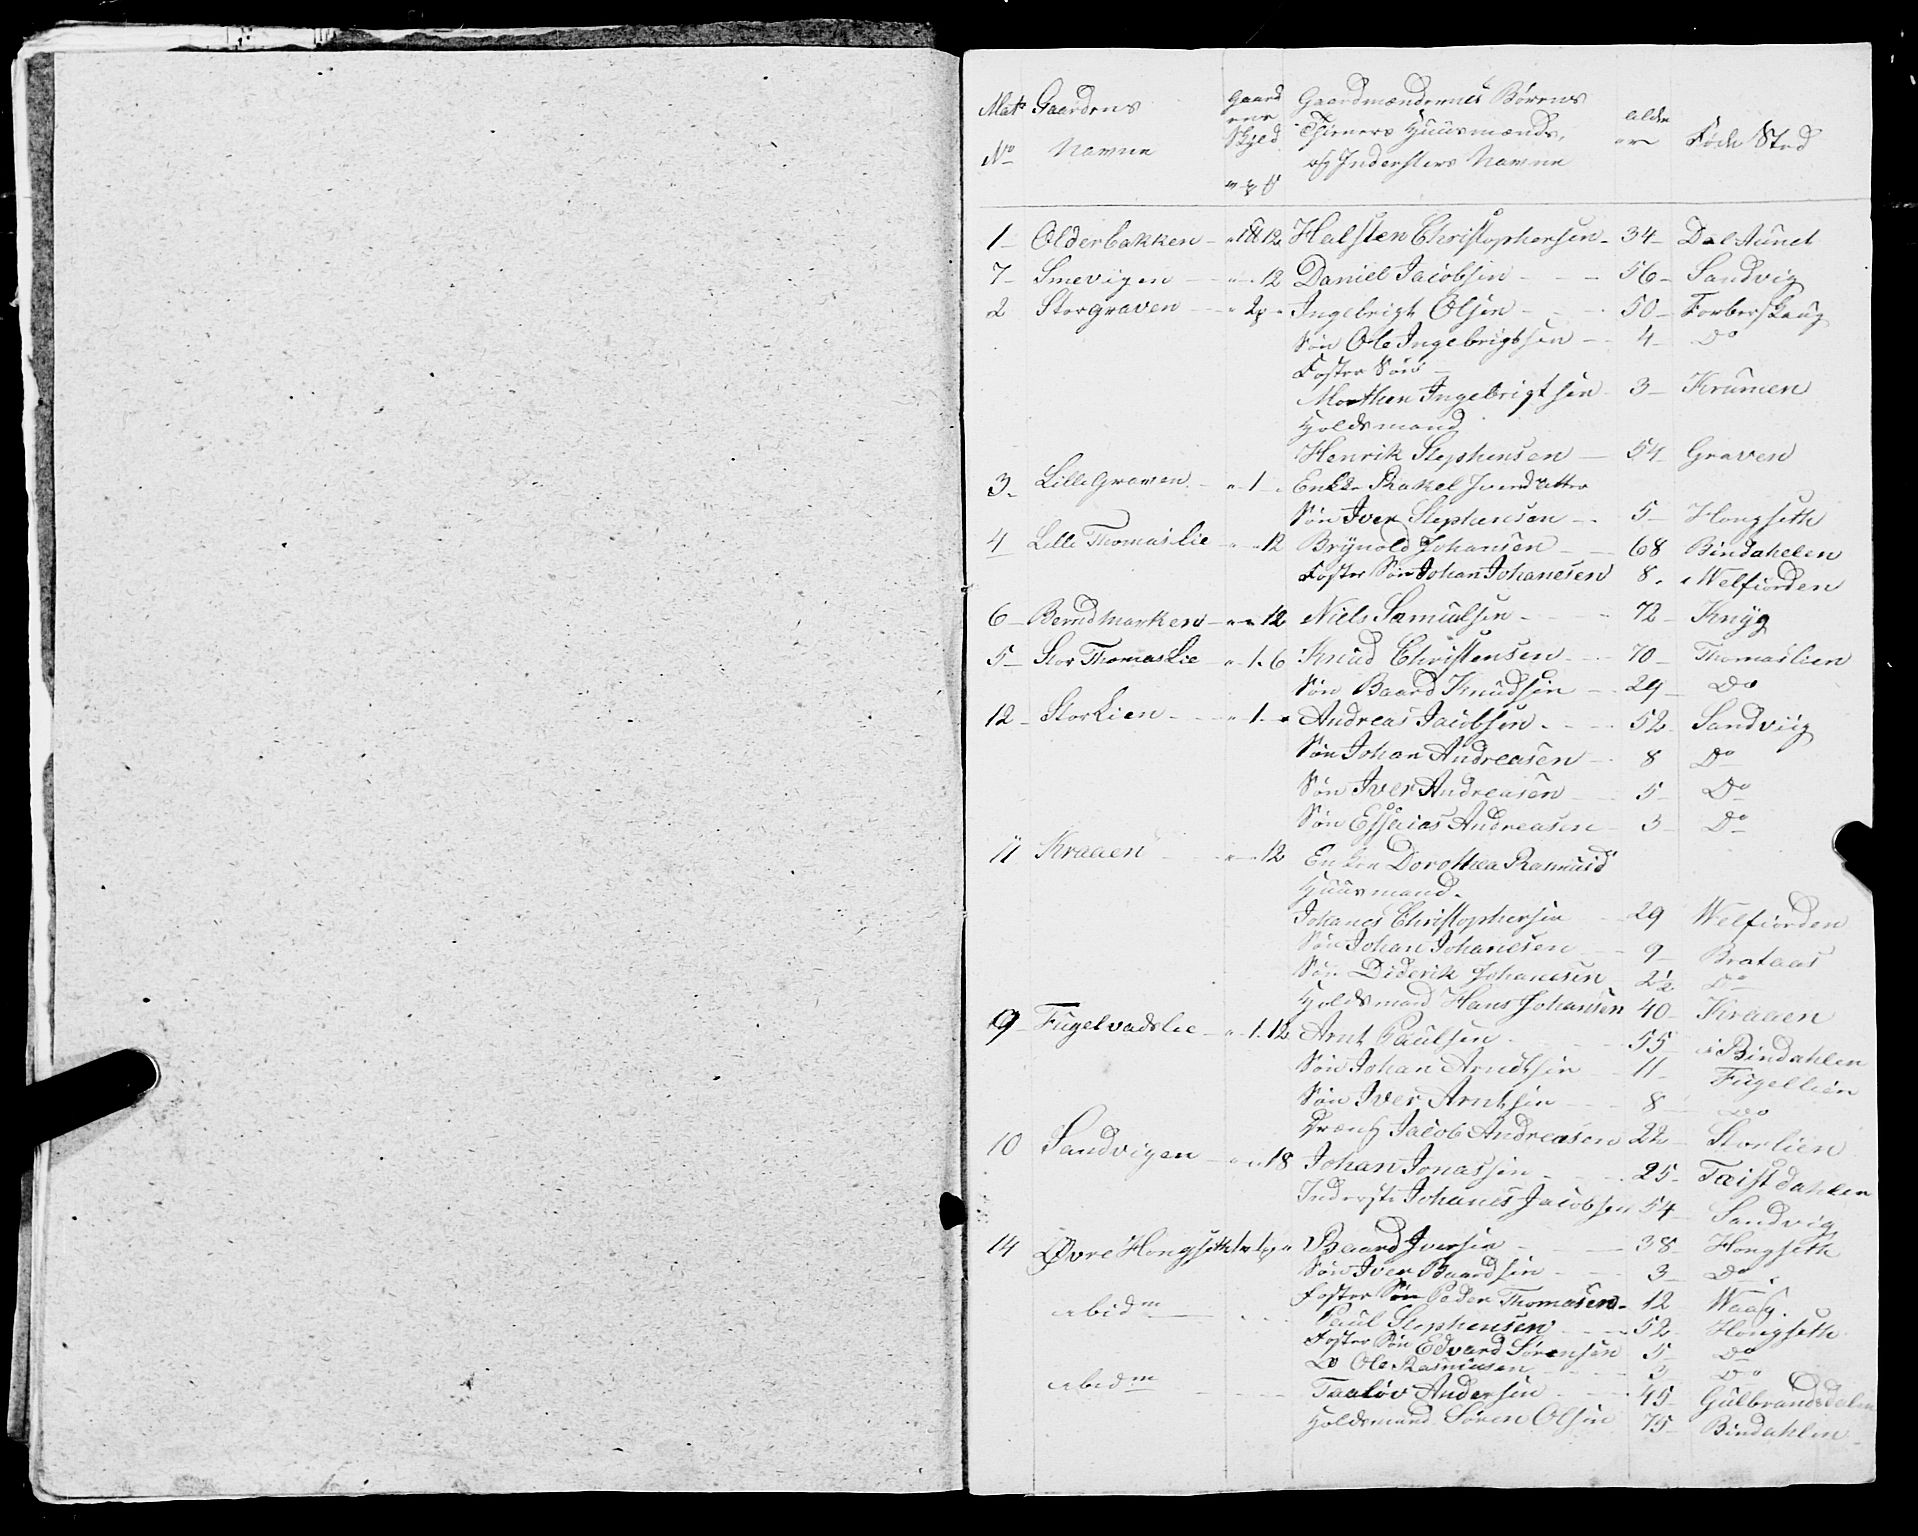 Matr Gaardens Gaard Gaardmændernes Børens alder
No Navne ens Skyld Tjeneres Huusmænds, Føde Stæd
og Inderster Navne
1 Olderbakken 12 Halsten Christophersen 34 Dal Aunet
7 Smevigen 12 Daniel Jacobsen 56 Sandvig
2 Storgraven 2 Ingebrigt Olsen 50 Forberskaug
Søn Ole Ingebrigtsen 4 Do
Foster Søn
Morthen Ingebrigtsen 3 Krumen
Holdsmand
Henrik Stephensen 54 Graven
3 Lille Graven 1 Enke Rakel Iversdatter
Søn Iver Stephensen 5 Hongseth
4 Lille Thomaslie 12 Brynold Johansen 68 Bindahelen
Foster Søn Johan Johanesen 8 Welfiorden
6 Berndmarken 12 Niels Samuelsen 72 Knyg
5 Stor ThomasLie 1.6 Knud Christensen 70 Thomaslien
Søn Baard Knudsen 29 Do
12 StorLien 1 Andreas Jacobsen 52 Sandviig
Søn Johan Andreasen 8 Do
Søn Iver Andreasen 5 Do
Søn Essaias Andreasen 3 Do
11 Kraaen 12 Enken Dorothea Rasmusd
Huusmand
Johanes Christophersen 29 Welfiorden
Søn Johan Johanesen 9 Brataas
Søn Diderik Johanesen 2½ Do
Holdsmand Hans Johansen 40 Kraaen
9 Fugelvadslie 1.12 Arnt Paulsen 55 i Bindahlen
Søn Johan Arndtsen 11 Fugellien
Søn Iver Arntsen 8 Do
Dreng Jacob Andreasen 22 Storlien
10 Sandvigen 18 Johan Jonassen 25 Tæistdahlen
Inderste Johanes Jacobsen 54 Sandvig
14 Øvre Hongseth Baard Iversen 38 Hongseth
Søn Iver Baardsen 3 Do
Foster Søn Peder Thomasen 12 Waag.
ibidm Paul Stephensen 52 Hongseth
Foster Søn Edvard Sørensen 5 Do
Do Ole Rasmusen 3 Do
ibidm Taaløv Andersen 45 Gulbrandsdalen
Holdsmand Søren Olsen 75 Bindahlen